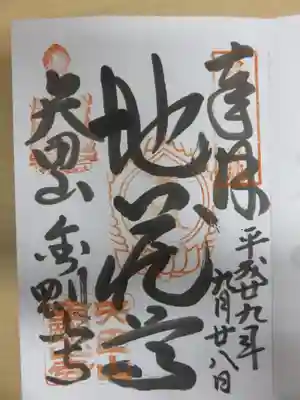 奉拝
平成廿九年
六月廿八日
地蔵尊
矢田山
金剛山寺